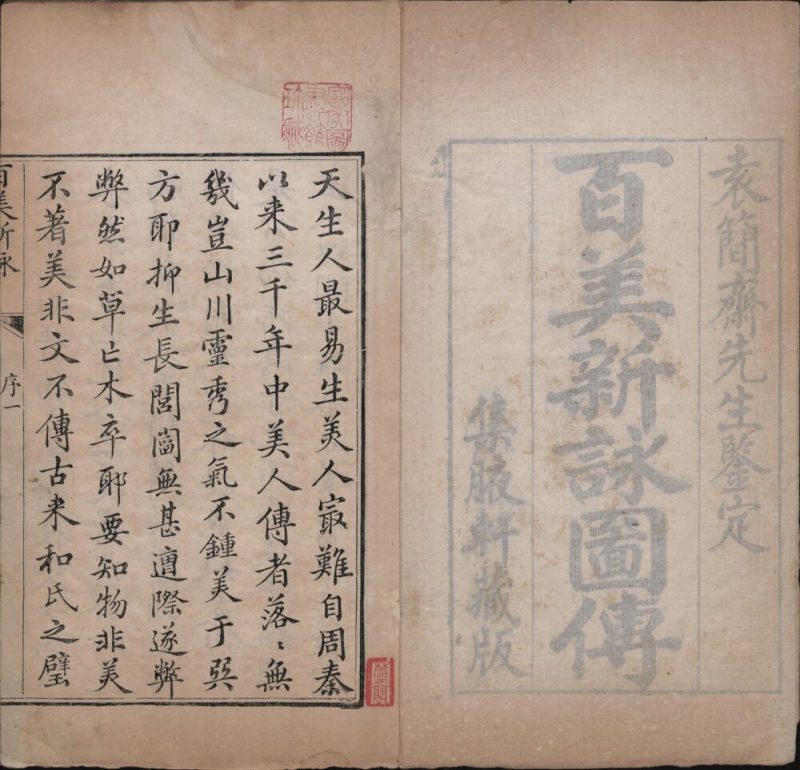 袁簡齋先生鑒定
百美新詠圖傳
集腋軒藏版
天生人最易生美人㝡難自周秦
以来三千年中美人傳者落〻無
幾豈山川靈秀之氣不鍾美于巽
方耶抑生長閭無甚遭際遂弊
弊然如草亡木卒耶要知物非美
不著美非文不傳古来和氏之璧
百美新詠
序一